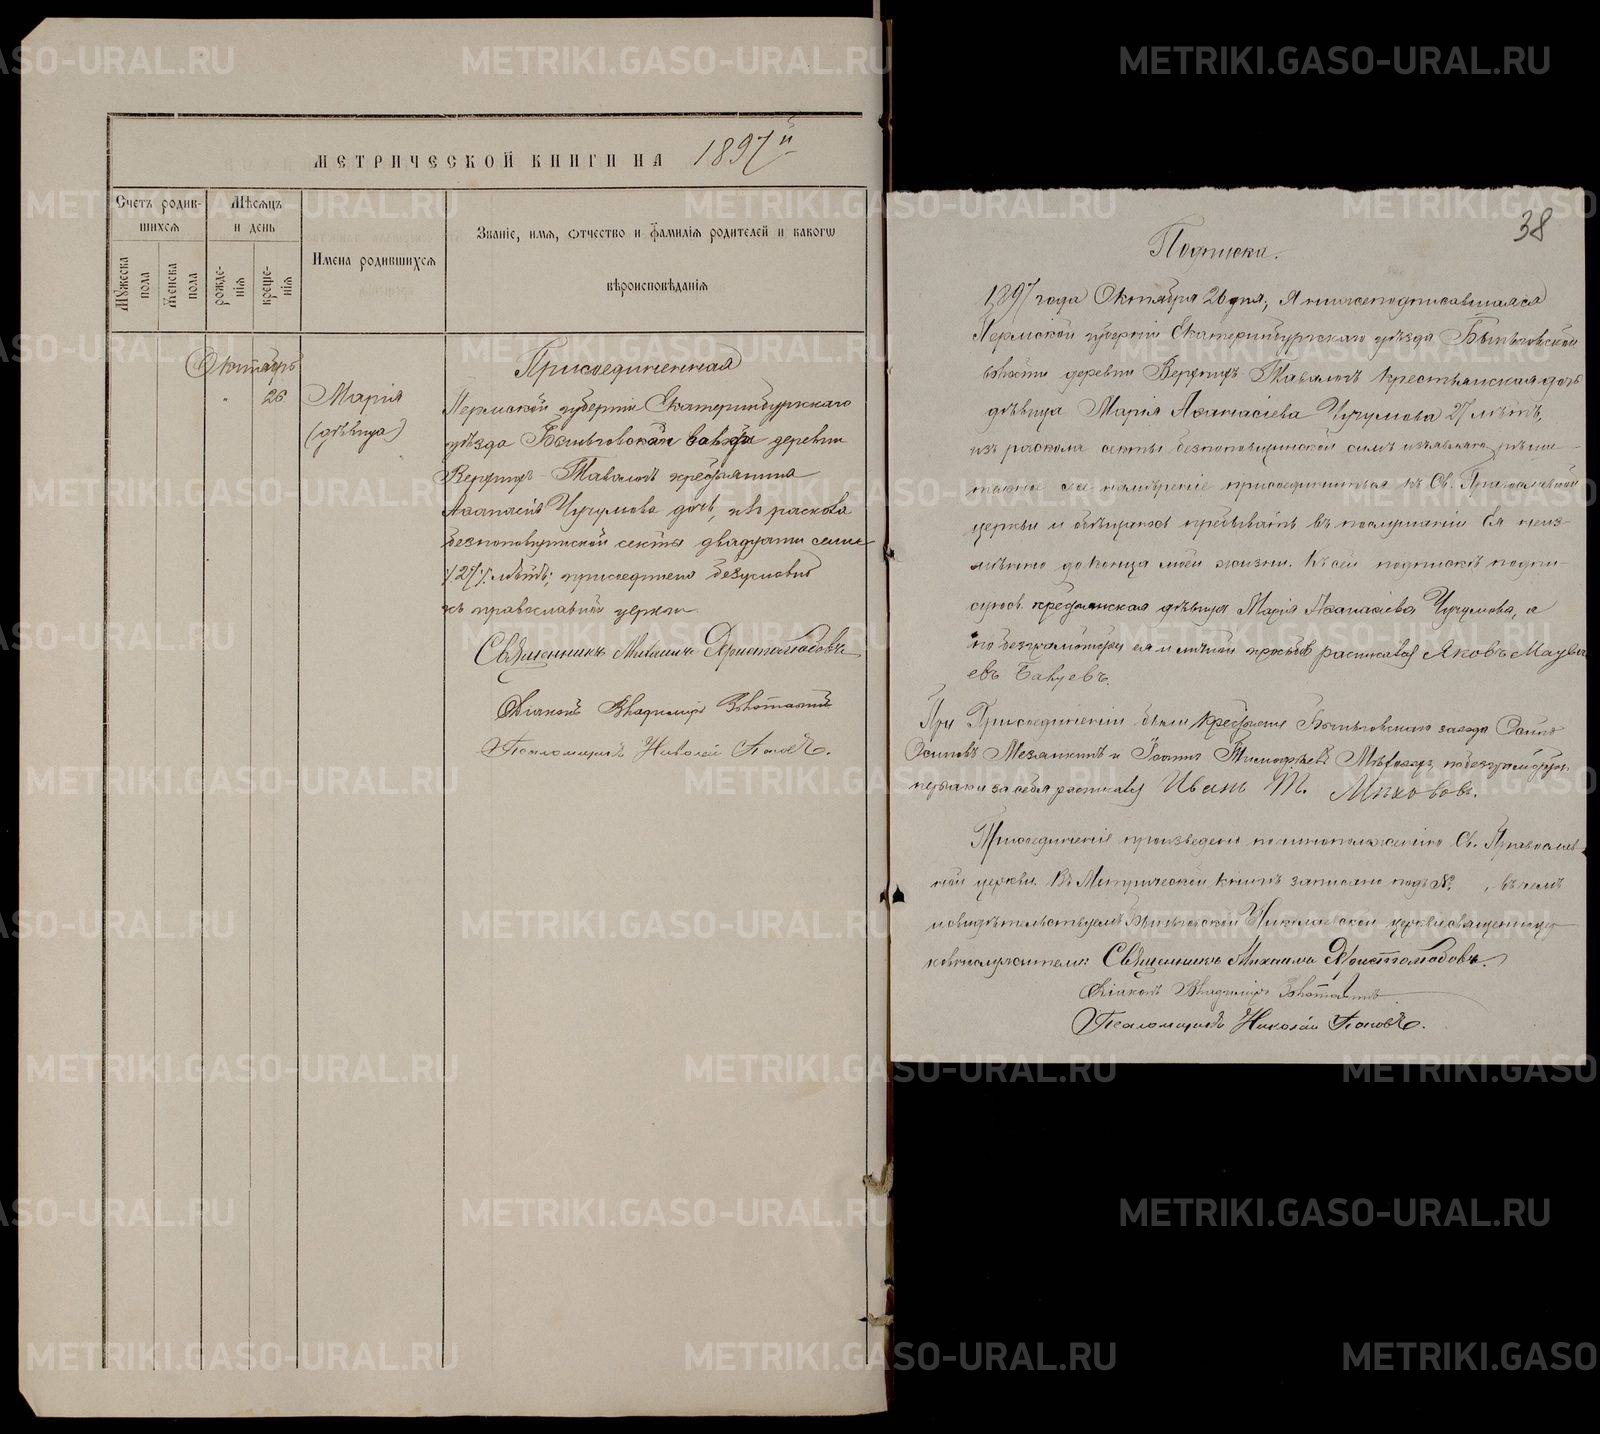 МЕТРИЧЕСКОЙ КНИГИ НА 1897й
Счетъ родив-
шихся
Мѣсяцъ
и день
Имена родившихся
Званіе, имя, отчество и фамилія родителей и какого
вѣроисповѣданія
Мужеска
пола
Женска
пола
рожде-
нія
креще-
нія
Октябрь
" 26
Марія
(дѣвица)
Присоединенная
Пермской губерніи Екатеринбургскаго
уѣзда Быньговской волости деревни
Верхнихъ-Тавологъ крестьянина
Аѳанасія Чугумова дочь, изъ раскола
безпоповщинской секты двадцати семи
/27/ лѣтъ; присоединена
къ православной церкви.
Священникъ Михаилъ Аристолобовъ
Діаконъ Владиміръ
Псаломщикъ Николай Поповъ.
38
Подписка.
1897 года Октября 26 дня, Я нижеподписавшаяся
Пермской губерніи Екатеринбургскаго уѣзда Быньговской
волости деревни Верхнихъ-Тавологъ Крестьянская дочь
дѣвица Марія Аѳанасіева Чугумова 27 лѣтъ,
изъ раскола секты безпоповщинской симъ изъявляю рѣши-
тельное свое намѣреніе присоединиться къ Св. Православной
церкви и обѣщаюсь пребывать въ послушаніи Ея неиз-
мѣнно до конца моей жизни. Къ сей подпискѣ подпи-
суюсь крестьянская дѣвица Марія Аѳанасіева Чугумова, а
по безграмотству ея и личной просьбѣ росписался Яковъ
При Присоединеніи были Крестьяне Быньговскаго завода Осипъ
Осиповъ Мезянкинъ и Іоаннъ Тимофѣевъ
за себя росписался Иванъ Т. Мѣховъ.
Присоединеніе произведено по чиноположенію Св. Православ-
ной церкви. Въ Метрической книгѣ записано подъ №. , въ чемъ
и свидѣтельствуемъ Быньговской Николаевской церкви священно-
церковнослужители: Священникъ Михаилъ Аристолобовъ.
Діаконъ Владиміръ
Псаломщикъ Николай Поповъ.
METRIKI.GASO-URAL.RU